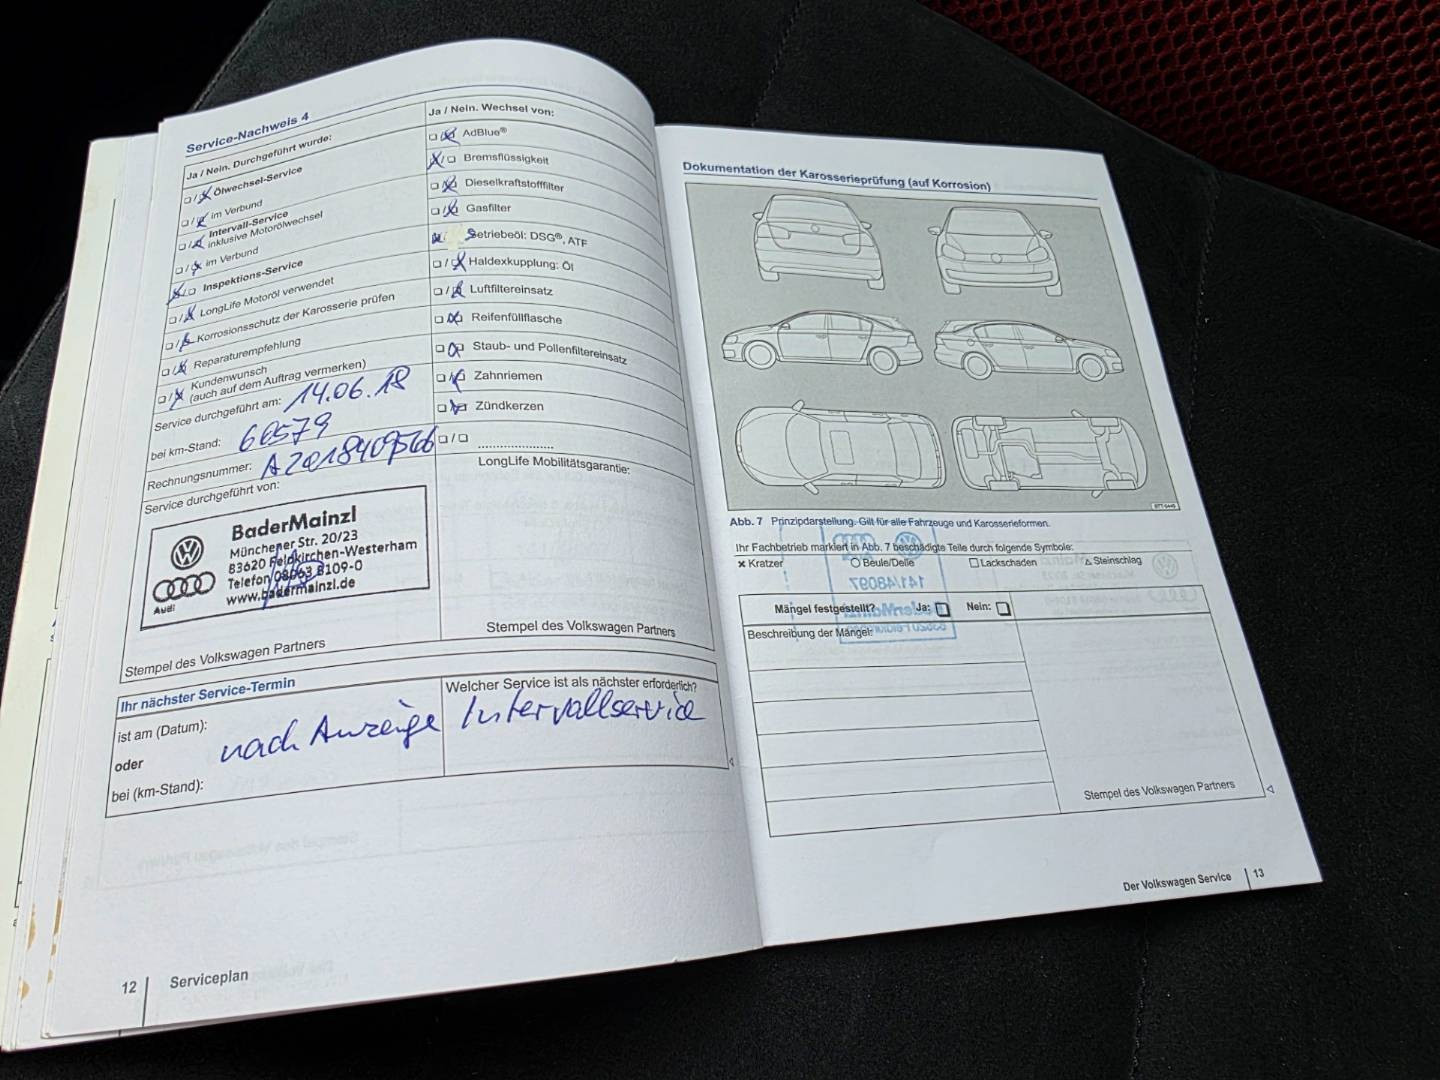 Service-Nachweis 4
Ja / Nein. Durchgeführt wurde:
Ölwechsel-Service
im Verbund
Intervall-Service
inklusive Motorölwechsel
im Verbund
Inspektions-Service
LongLife Motoröl verwendet
Korrosionsschutz der Karosserie prüfen
Reparaturempfehlung
Kundenwunsch
(auch auf dem Auftrag vermerken)
Service durchgeführt am: 14.06.18
bei km-Stand: 60579
Rechnungsnummer:
Service durchgeführt von:
BaderMainzl
Münchener Str. 20/23
83620 Feldkirchen-Westerham
Telefon 08063 8109-0
www.badermainzl.de
Audi
Stempel des Volkswagen Partners
Ja / Nein. Wechsel von:
AdBlue®
Bremsflüssigkeit
Dieselkraftstofffilter
Gasfilter
Getriebeöl: DSG®, ATF
Haldexkupplung: Öl
Luftfiltereinsatz
Reifenfüllflasche
Staub- und Pollenfiltereinsatz
Zahnriemen
Zündkerzen
LongLife Mobilitätsgarantie:
Stempel des Volkswagen Partners
Ihr nächster Service-Termin
ist am (Datum):
oder
bei (km-Stand):
nach Anzeige
Welcher Service ist als nächster erforderlich?
Intervallservice
12 Serviceplan
Dokumentation der Karosserieprüfung (auf Korrosion)
Abb. 7 Prinzipdarstellung. Gilt für alle Fahrzeuge und Karosserieformen.
Ihr Fachbetrieb markiert in Abb. 7 beschädigte Teile durch folgende Symbole:
Kratzer Beule/Delle Lackschaden Steinschlag
Mängel festgestellt? Ja: Nein:
Beschreibung der Mängel:
Stempel des Volkswagen Partners
Der Volkswagen Service 13